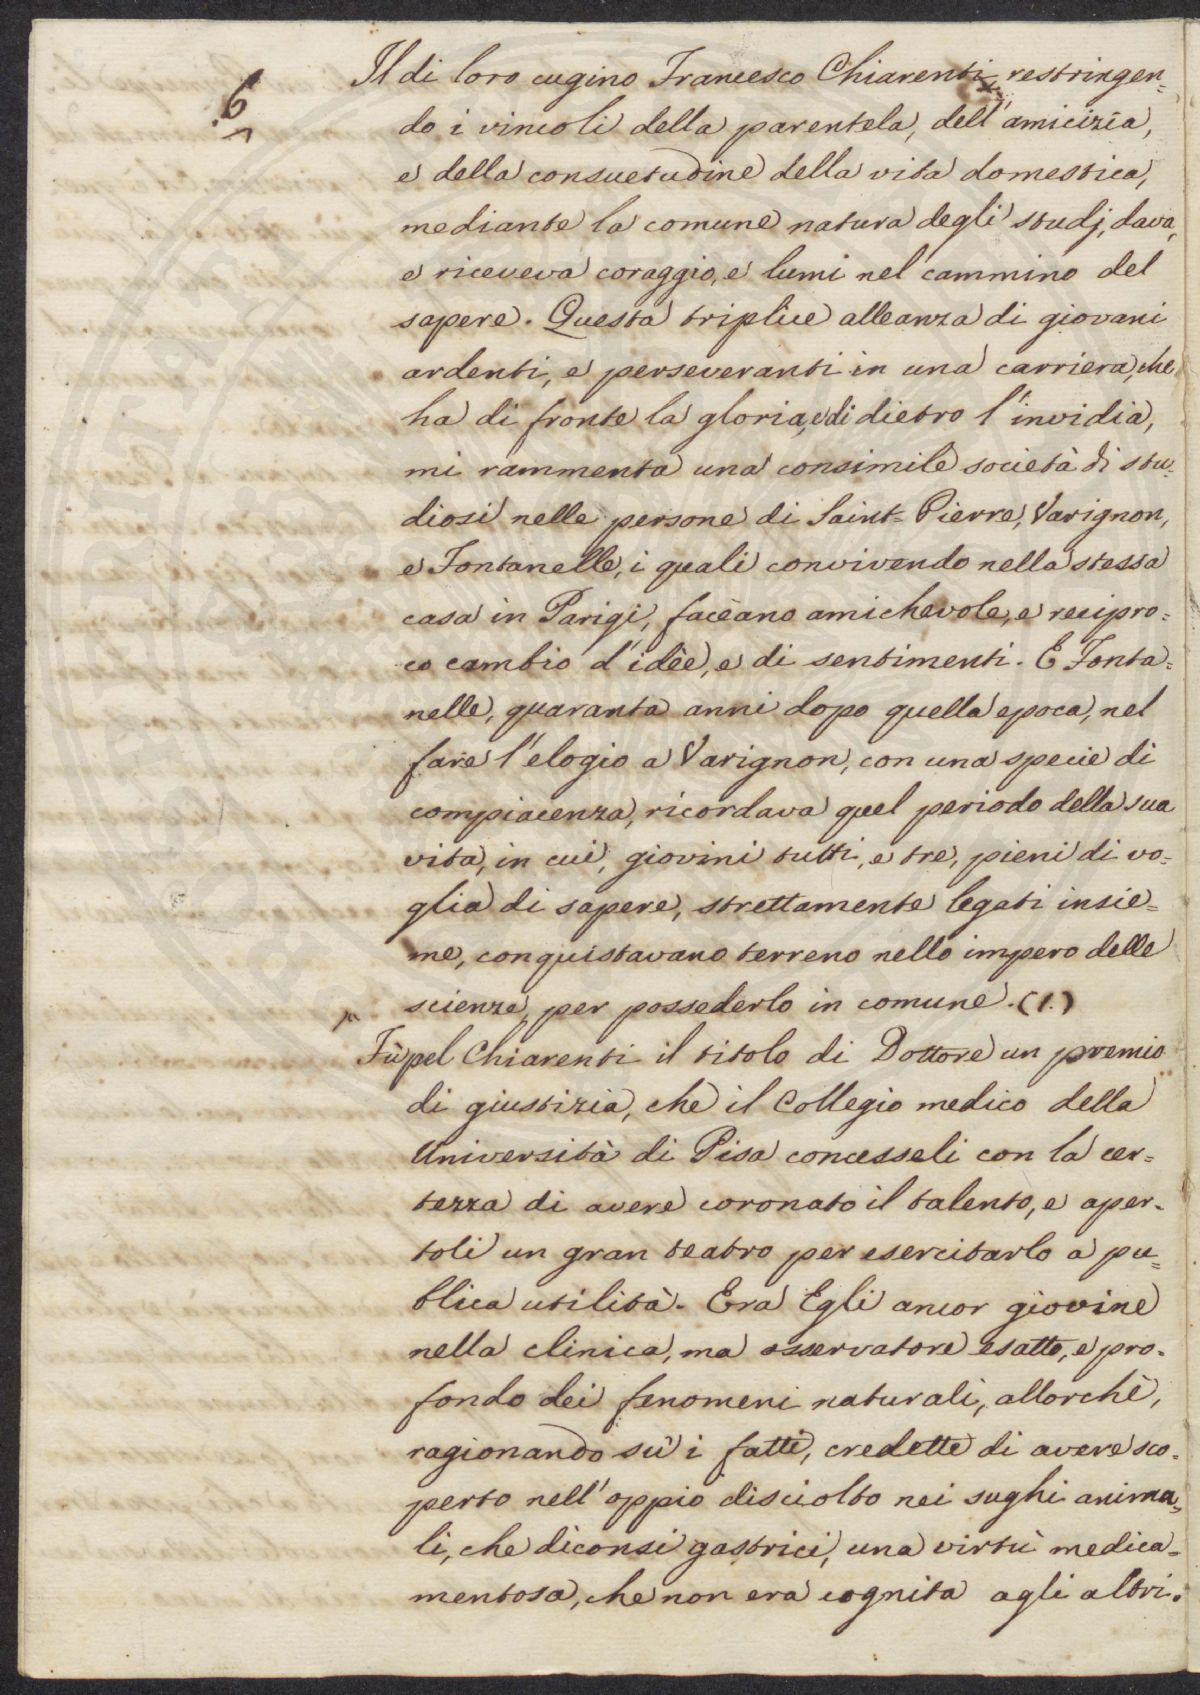 6
Il di loro cugino Francesco Chiarenti, restringen=
do i vincoli della parentela, dell'amicizia,
e della consuetudine della vita domestica,
mediante la comune natura degli studj, dava,
e riceveva coraggio, e lumi nel cammino del
sapere. Questa triplice alleanza di giovani
ardenti, e perseveranti in una carriera, che
ha di fronte la gloria, e di dietro l'invidia,
mi rammenta una consimile società di stu=
diosi nelle persone di Saint=Pierre, Varignon,
e Fontanelle, i quali convivendo nella stessa
casa in Parigi, facèano amichevole, e recipro=
co cambio d'idèe, e di sentimenti. E Fonta=
nelle, quaranta anni dopo quella epoca, nel
fare l'elogio a Varignon, con una specie di
compiacenza, ricordava quel periodo della sua
vita, in cui, giovini tutti, e tre, pieni di vo=
glia di sapere, strettamente legati insie=
me, conquistavano terreno nello impero delle
scienze, per possederlo in comune. (1.)
Fù pel Chiarenti il titolo di Dottore un premio
di giustizia, che il Collegio medico della
Università di Pisa concesseli con la cer=
tezza di avere coronato il talento, e aper=
toli un gran teatro per esercitarlo a pu=
blica utilità. Era Egli ancor giovine
nella clinica, ma osservatore esatto, e pro=
fondo dei fenomeni naturali, allorchè,
ragionando sù i fatti, credette di avere sco=
perto nell'oppio disciolto nei sughi anima=
li, che diconsi gastrici, una virtù medica=
mentosa, che non era cognita agli altri.